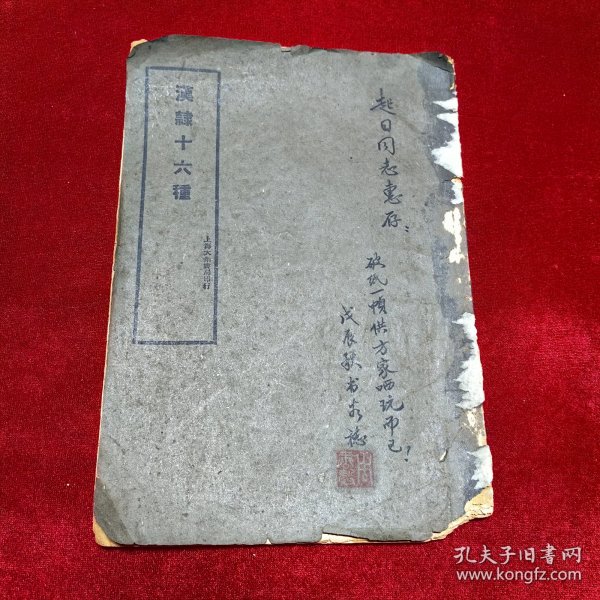 起日同志惠存：
破纸一帧供方家哂玩而已！
戊辰秋书
漢隸十六種
上海大眾書局印行
孔夫子旧书网
www.kongfz.com